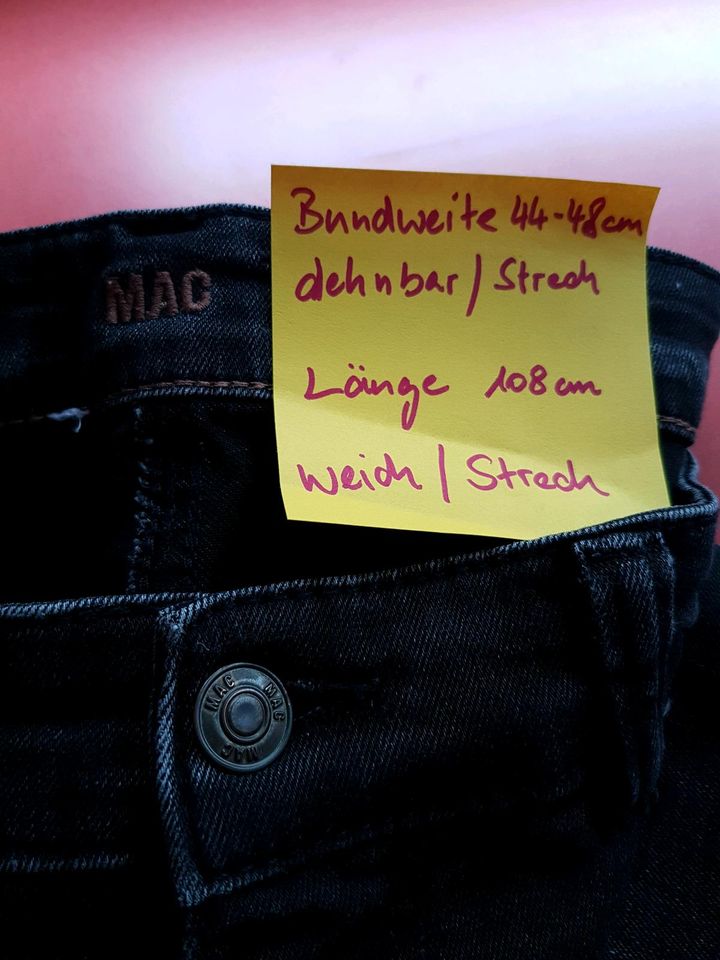 Bundweite 44-48cm
dehnbar / Strech
MAC
Länge 108cm
weich / Strech
MAC MAC MAC